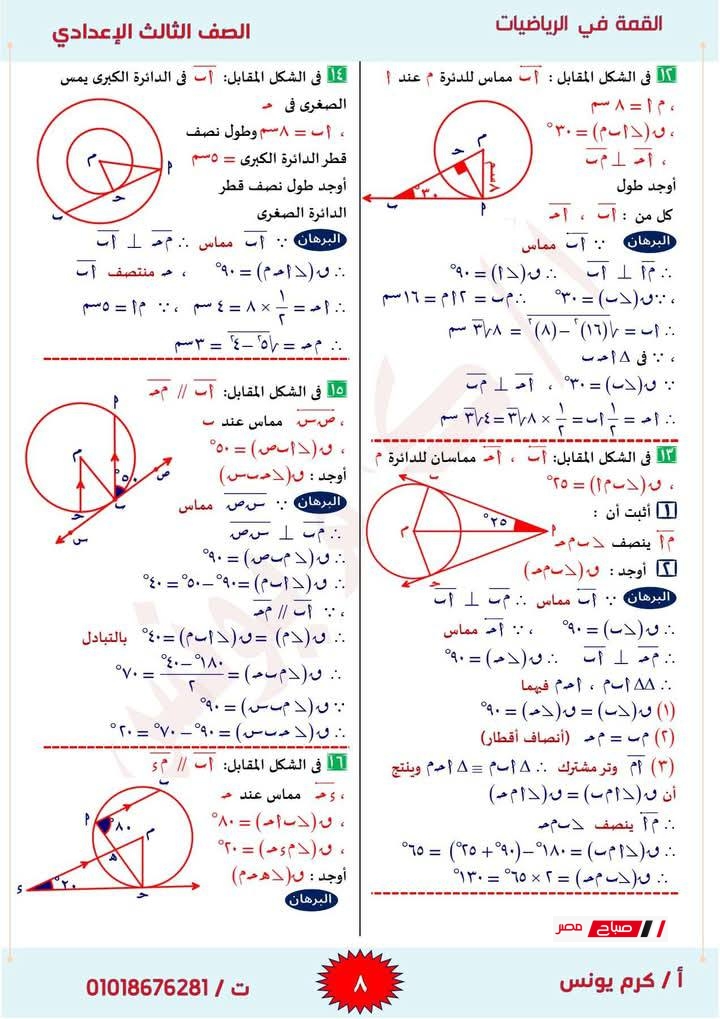 القمة في الرياضيات
الصف الثالث الإعدادي
١٢ فى الشكل المقابل : أب مماس للدئرة م عند أ
، م أ = ٨ سم
، ق(∠أ ب م) = ٣٠°
، أحـ ⊥ م ب
أوجد طول
كل من : أب ، أحـ
م
حـ
٨سم
٣٠°
ب
أ
البرهان ∵ أب مماس
∴ م أ ⊥ أب ∴ ق(∠أ) = ٩٠°
، ∵ ق(∠ب) = ٣٠° ∴ م ب = ٢ أ م = ١٦ سم
∴ أب = √(١٦)² − (٨)² = ٨√٣ سم
، ∵ فى Δ أ حـ ب
ق(∠ب) = ٣٠° ، أحـ ⊥ م ب
∴ أحـ = ١/٢ أب = ١/٢ × ٨√٣ = ٤√٣ سم
١٣ فى الشكل المقابل: أب ، أحـ مماسان للدائرة م
، ق(∠ب أ م) = ٢٥°
١ أثبت أن :
م أ ينصف ∠ب م حـ
٢ أوجد : ق(∠ب م حـ)
ب
٢٥°
أ
م
حـ
البرهان ∵ أب مماس ∴ م ب ⊥ أب
∴ ق(∠ب) = ٩٠° ، ∵ أحـ مماس
∴ م حـ ⊥ أب ∴ ق(∠حـ) = ٩٠°
∴ ΔΔ أ ب م ، أ حـ م فيهما
(١) ق(∠ب) = ق(∠حـ) = ٩٠°
(٢) م ب = م حـ (أنصاف أقطار)
(٣) أ م وتر مشترك ∴ Δ أ ب م ≡ Δ أ حـ م وينتج
أن ق(∠أ م ب) = ق(∠أ م حـ)
∴ م أ ينصف ∠ب م حـ
∴ ق(∠أ م ب) = ١٨٠° − (٩٠° + ٢٥°) = ٦٥°
∴ ق(∠ب م حـ) = ٢ × ٦٥° = ١٣٠°
١٤ فى الشكل المقابل: أب فى الدائرة الكبرى يمس
الصغرى فى حـ
، أب = ٨ سم وطول نصف
قطر الدائرة الكبرى = ٥ سم
أوجد طول نصف قطر
الدائرة الصغرى
م
أ
حـ
ب
البرهان ∵ أب مماس ∴ م حـ ⊥ أب
∴ ق(∠أ حـ م) = ٩٠° ، حـ منتصف أب
∴ أحـ = ١/٢ × ٨ = ٤ سم ، ∵ م أ = ٥ سم
∴ م حـ = √٥² − ٤² = ٣ سم
١٥ فى الشكل المقابل: أب // م حـ
، ص س مماس عند ب
، ق(∠أ ب ص) = ٥٠°
أوجد : ق(∠حـ ب س)
أ
م
ص
٥٠°
ب
حـ
س
البرهان ∵ س ص مماس
∴ م ب ⊥ س ص
∴ ق(∠م ب ص) = ٩٠°
∴ ق(∠أ ب م) = ٩٠° − ٥٠° = ٤٠°
، ∵ أب // م حـ
∴ ق(∠م) = ق(∠أ ب م) = ٤٠° بالتبادل
∴ ق(∠م حـ ب) = (١٨٠° − ٤٠°)/٢ = ٧٠°
∵ ق(∠م ب س) = ٩٠°
∴ ق(∠حـ ب س) = ٩٠° − ٧٠° = ٢٠°
١٦ فى الشكل المقابل: أب // م ء
، ء حـ مماس عند حـ
، ق(∠ب أ حـ) = ٨٠°
، ق(∠م ء حـ) = ٢٠°
أوجد : ق(∠هـ حـ م)
ب
أ
٨٠°
م
هـ
٢٠°
ء
حـ
البرهان
صباح مصر
أ / كرم يونس
٨
ت / 01018676281